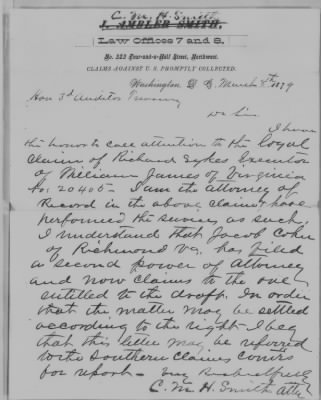 C. M. H. Smith
J. AMBLER SMITH.
Law Offices 7 and 8,
No. 323 Four-and-a-Half Street, Northwest.
CLAIMS AGAINST U. S. PROMPTLY COLLECTED.
Washington, D. C. March 8th 1879
Hon 3d Auditor Treasury
Dr Sir
I have
the honor to call attention to the loyal
claim of Richard Sykes Executor
of William James of Virginia
No. 20405 - I am the attorney of
Record in the above claim & have
performed the services as such.
I understand that Jacob Cohn
of Richmond Va, has filed
a second power of Attorney
and now claims to the one
entitled to the draft. In order
that the matter may be settled
according to the right I beg
that this letter may be referred
to the Southern Claims Com'rs
for report - very Respectfully
C. M. H. Smith atty